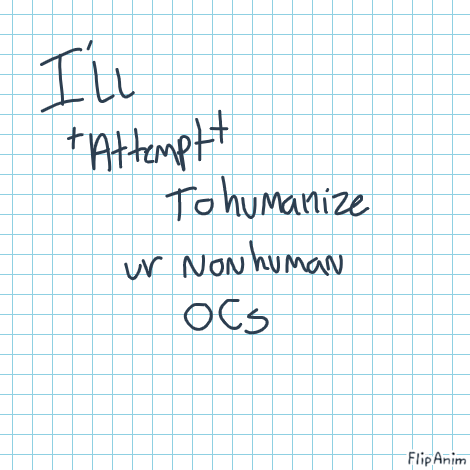 I'll
+Attempt+
To humanize
ur Nonhuman
OCs
FlipAnim